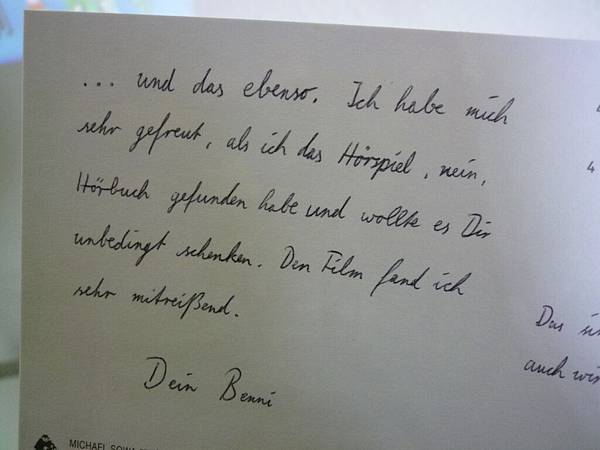 ... und das ebenso. Ich habe mich
sehr gefreut, als ich das Hörspiel, nein,
Hörbuch gefunden habe und wollte es Dir
unbedingt schenken. Den Film fand ich
sehr mitreißend.
Dein Benni
4
Das
auch
MICHAEL SOWA